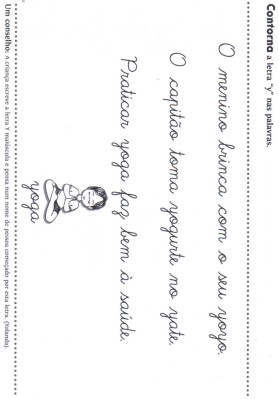 Contorna a letra "y" nas palavras.
O menino brinca com o seu yoyo.
O capitão toma yogurte no yate.
Praticar yoga faz bem à saúde.
yoga
Um conselho: A criança escreve a letra Y maiúscula e pensa num nome de pessoa começado por esta letra. (Yolanda).